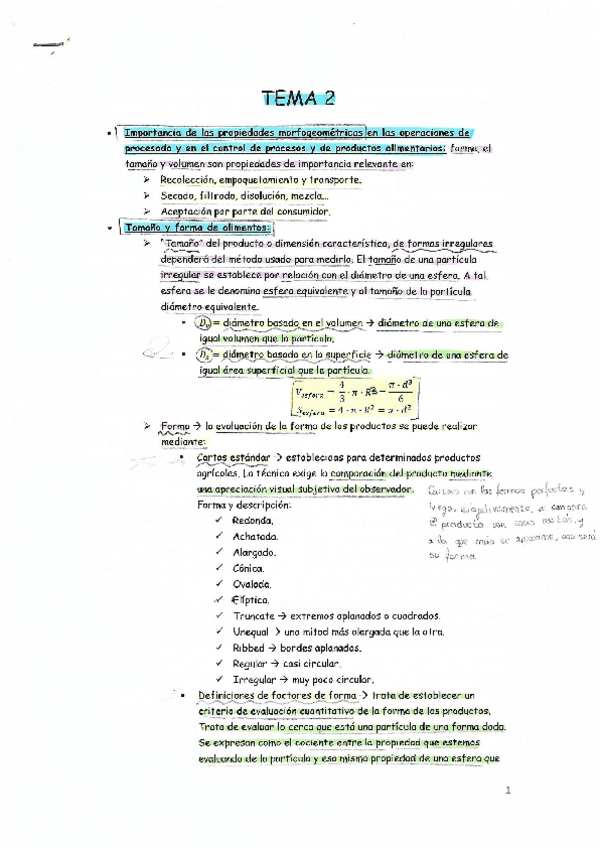 TEMA 2
• Importancia de las propiedades morfogeométricas en las operaciones de
procesado y en el control de procesos y de productos alimentarios: forma, el
tamaño y volumen son propiedades de importancia relevante en:
➢ Recolección, empaquetamiento y transporte.
➢ Secado, filtrado, disolución, mezcla...
➢ Aceptación por parte del consumidor.
• Tamaño y forma de alimentos:
➢ "Tamaño" del producto o dimensión característica, de formas irregulares
dependerá del método usado para medirlo. El tamaño de una partícula
irregular se establece por relación con el diámetro de una esfera. A tal
esfera se le denomina esfera equivalente y al tamaño de la partícula
diámetro equivalente.
▪ = diámetro basado en el volumen → diámetro de una esfera de
igual volumen que la partícula.
▪ = diámetro basado en la superficie → diámetro de una esfera de
igual área superficial que la partícula.
V_esfera = 4/3 · π · R³ = π · d³/6
S_esfera = 4 · π · R² = π · d²
➢ Forma → la evaluación de la forma de los productos se puede realizar
mediante:
▪ Cartas estándar → establecidas para determinados productos
agrícolas. La técnica exige la comparación del producto mediante
una apreciación visual subjetiva del observador.
Forma y descripción:
✓ Redonda.
✓ Achatada.
✓ Alargado.
✓ Cónica.
✓ Ovalada.
✓ Elíptica.
✓ Truncate → extremos aplanados o cuadrados.
✓ Unequal → una mitad más alargada que la otra.
✓ Ribbed → bordes aplanados.
✓ Regular → casi circular.
✓ Irregular → muy poco circular.
con las formas perfectas y
luego, subjetivamente, se compara
el producto con
a la que más se aproxime, esa será
su forma
▪ Definiciones de factores de forma → trata de establecer un
criterio de evaluación cuantitativo de la forma de los productos.
Trata de evaluar lo cerca que está una partícula de una forma dada.
Se expresan como el cociente entre la propiedad que estemos
evaluando de la partícula y esa misma propiedad de una esfera que
1